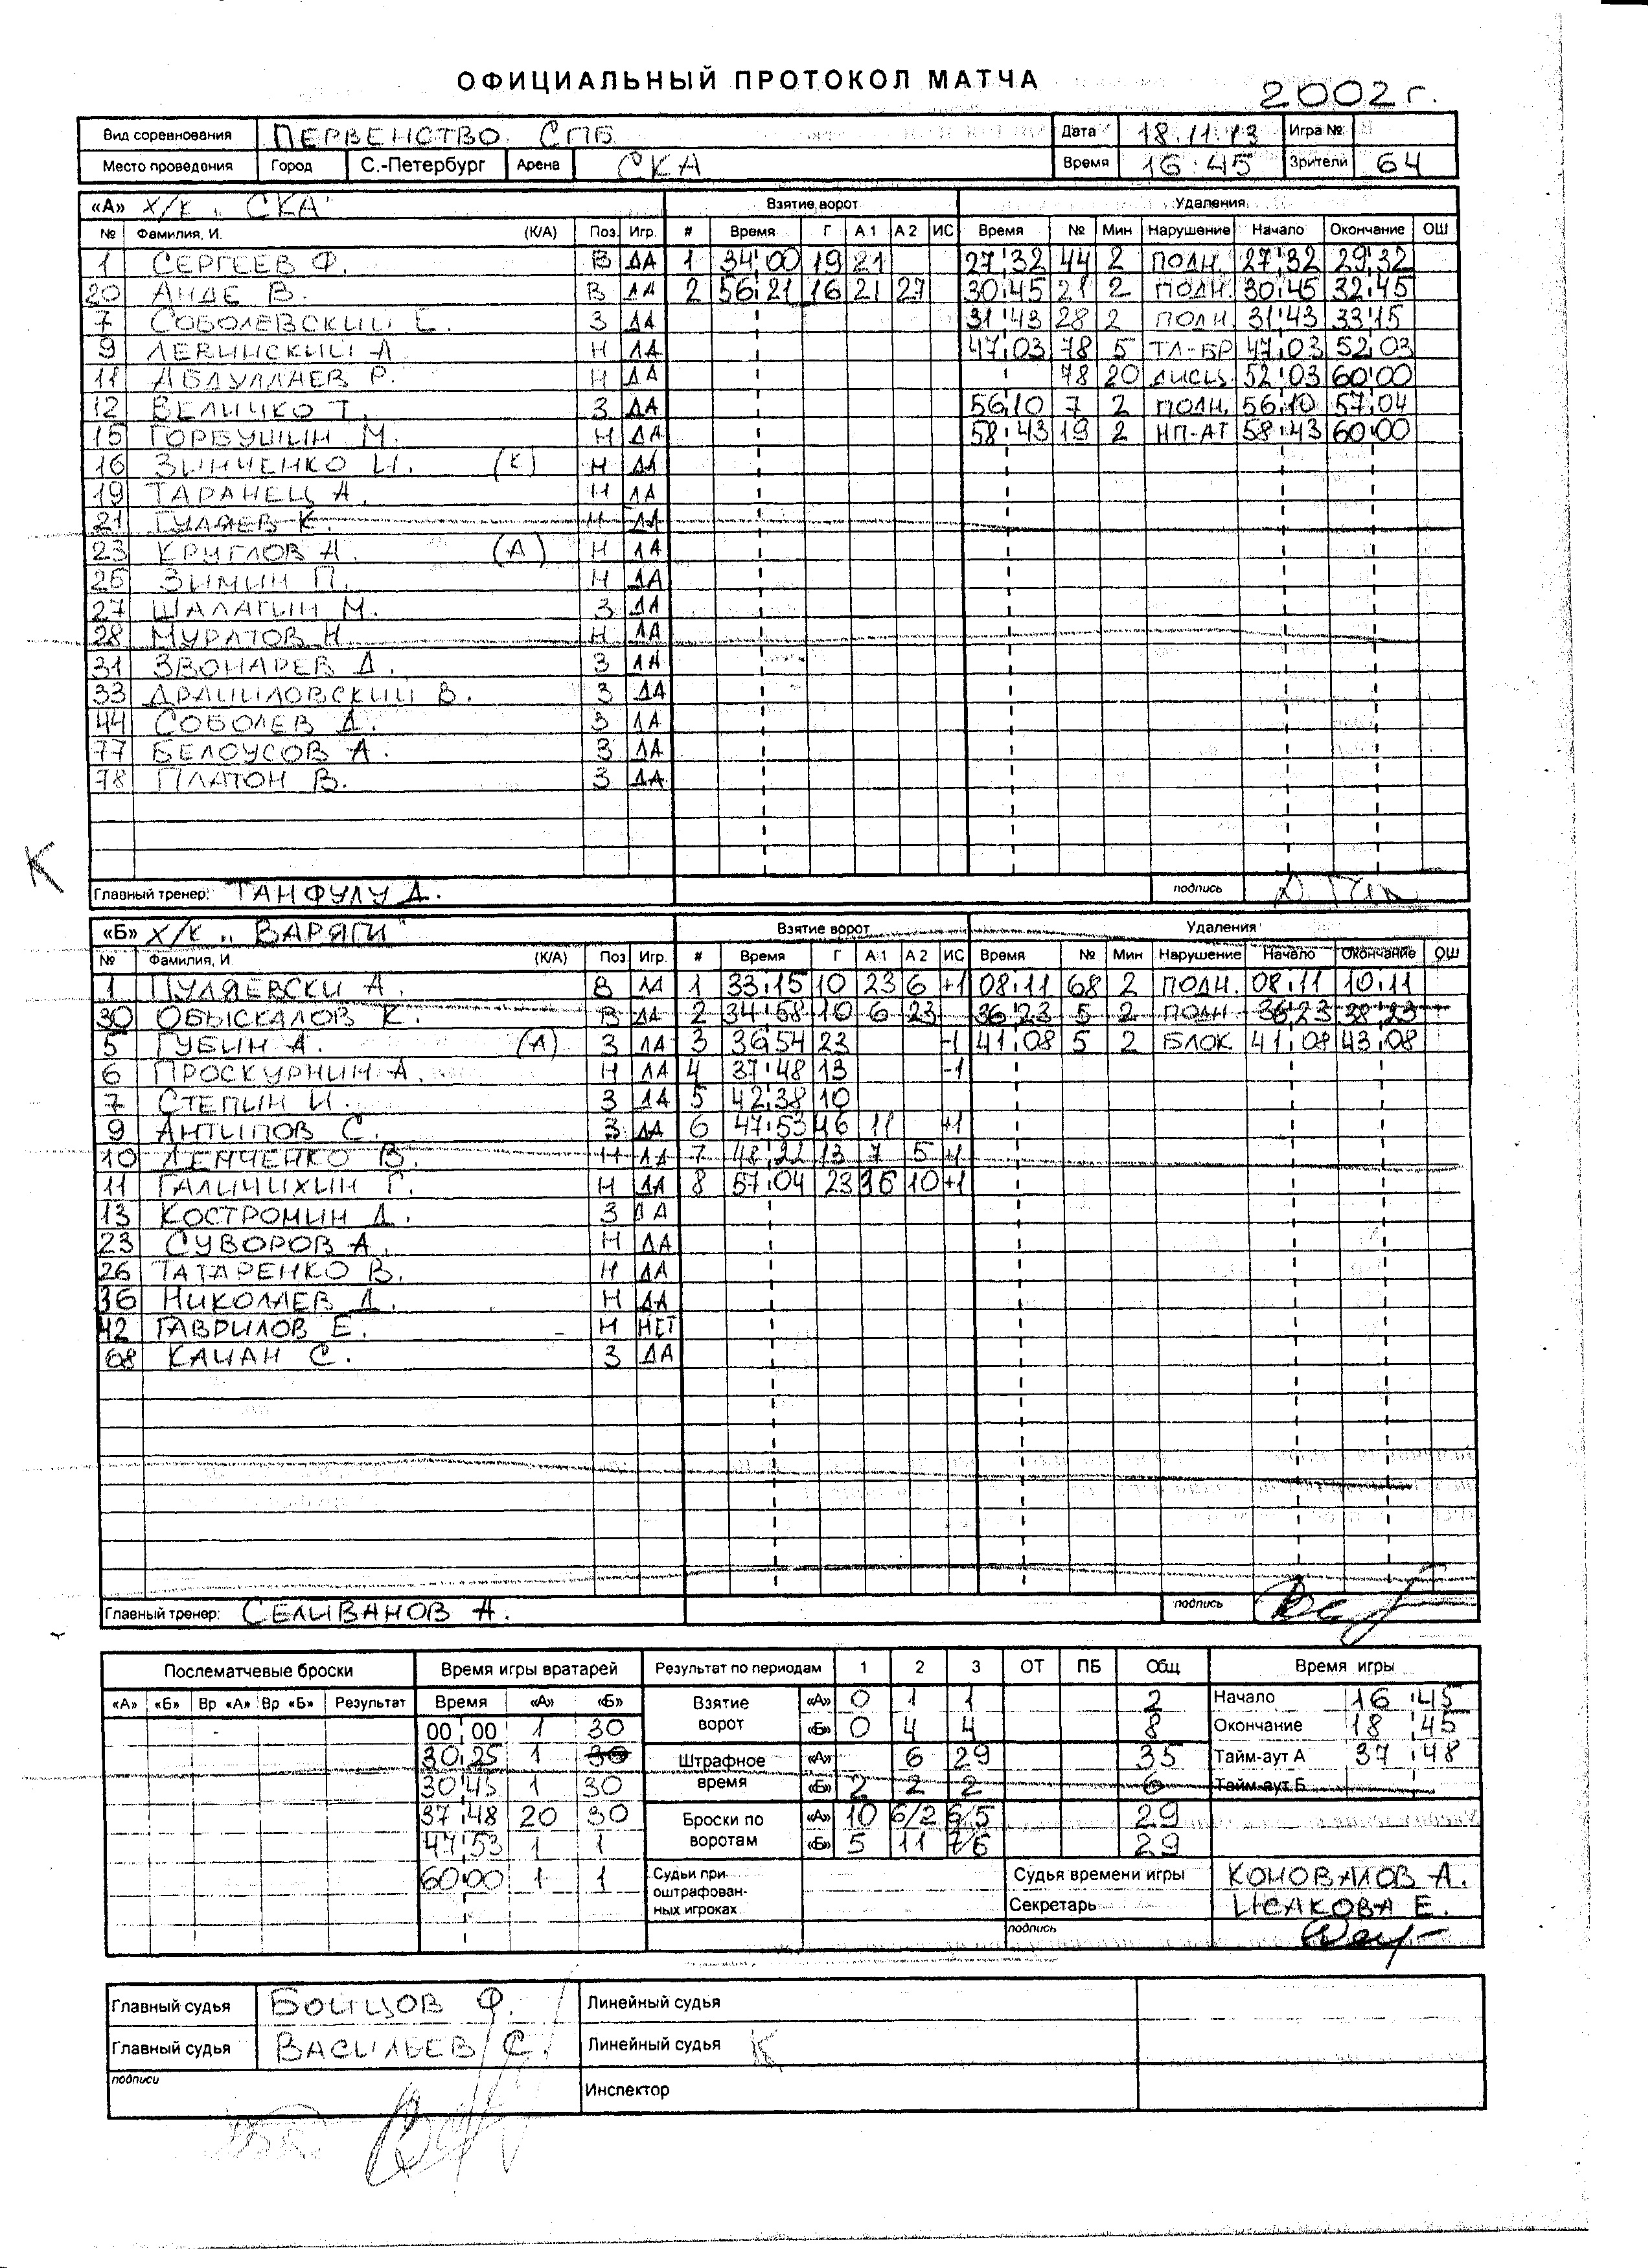 ОФИЦИАЛЬНЫЙ ПРОТОКОЛ МАТЧА
2002 г.
Вид соревнования ПЕРВЕНСТВО СПБ Дата 18.11.13 Игра №
Место проведения Город С.-Петербург Арена СКА Время 16:45 Зрители 64
«А» Х/К „СКА" Взятие ворот Удаления
№ Фамилия, И. (К/А) Поз. Игр. # Время Г А1 А2 ИС Время № Мин Нарушение Начало Окончание ОШ
1 СЕРГЕЕВ Ф. В ДА 1 34:00 19 21 27:32 44 2 ПОДН. 27:32 29:32
20 АНДЕ В. В ДА 2 56:21 16 21 27 30:45 21 2 ПОДН. 30:45 32:45
7 СОБОЛЕВСКИЙ Е. З ДА 31:43 28 2 ПОДН. 31:43 33:15
9 ЛЕВИНСКИЙ А Н ДА 47:03 78 5 ТЛ-БР 47:03 52:03
11 АБДУЛЛАЕВ Р. Н ДА 78 20 ДИСЦ. 52:03 60:00
12 ВЕЛИЧКО Т. З ДА 56:10 7 2 ПОДН. 56:10 57:04
15 ГОРБУШИН М. Н ДА 58:43 19 2 НП-АТ 58:43 60:00
16 ЗИНЧЕНКО И. (К) Н ДА
19 ТАРАНЕЦ А. Н ДА
21 ГУЛЯЕВ К. Н ДА
23 КРУГЛОВ А. (А) Н ДА
26 ЗИМИН П. Н ДА
27 ШАЛАГИН М. З ДА
28 МУРАТОВ Н. Н ДА
31 ЗВОНАРЕВ Д. З ДА
33 ДРАНИЛОВСКИЙ В. З ДА
44 СОБОЛЕВ Д. З ДА
77 БЕЛОУСОВ А. З ДА
78 ПЛАТОН В. З ДА
К
Главный тренер: ТАНФУЛУ Д. подпись
«Б» Х/К „ВАРЯГИ" Взятие ворот Удаления
№ Фамилия, И. (К/А) Поз. Игр. # Время Г А1 А2 ИС Время № Мин Нарушение Начало Окончание ОШ
1 ПУЛЯЕВСКИ А. В ДА 1 33:15 10 23 6 +1 08:11 68 2 ПОДН. 08:11 10:11
30 ОБЫСКАЛОВ К. В ДА 2 34:58 10 6 23 36:23 5 2 ПОДН 36:23 38:23
5 ГУБИН А. (А) З ДА 3 36:54 23 -1 41:08 5 2 БЛОК. 41:08 43:08
6 ПРОСКУРНИН А. Н ДА 4 37:48 13 -1
7 СТЕПИН И. З ДА 5 42:38 10
9 АНТИПОВ С. З ДА 6 47:53 46 11 +1
10 ДЕМЧЕНКО В. Н ДА 7 48:22 13 7 5 +1
11 ГАЛИЧИХИН Г. Н ДА 8 57:04 23 36 10 +1
13 КОСТРОМИН Д. З ДА
23 СУВОРОВ А. Н ДА
26 ТАТАРЕНКО В. Н ДА
36 НИКОЛАЕВ Д. Н ДА
42 ГАВРИЛОВ Е. Н НЕТ
68 КАЧАН С. З ДА
Главный тренер: СЕЛИВАНОВ А. подпись
Послематчевые броски Время игры вратарей Результат по периодам 1 2 3 ОТ ПБ Общ Время игры
«А» «Б» Вр «А» Вр «Б» Результат Время «А» «Б» Взятие ворот «А» 0 1 1 2 Начало 16:45
00:00 1 30 «Б» 0 4 4 8 Окончание 18:45
30:25 1 30 Штрафное время «А» 6 29 35 Тайм-аут А 37:48
30:45 1 30 «Б» 2 2 2 6 Тайм-аут Б
37:48 20 30 Броски по воротам «А» 10 6/2 6/5 29
47:53 1 1 «Б» 5 11 7/6 29
60:00 1 1 Судьи при оштрафован- ных игроках Судья времени игры КОНОВАЛОВ А.
Секретарь ИСАКОВА Е.
подпись
Главный судья БОЙЦОВ Ф. Линейный судья
Главный судья ВАСИЛЬЕВ С. Линейный судья К
подписи Инспектор